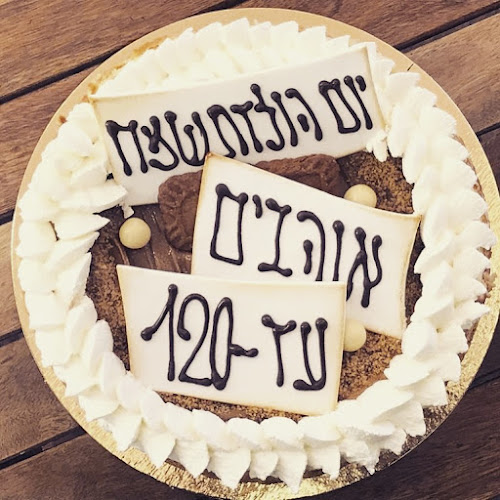 יום הולדת שמח
אוהבים
עד-120